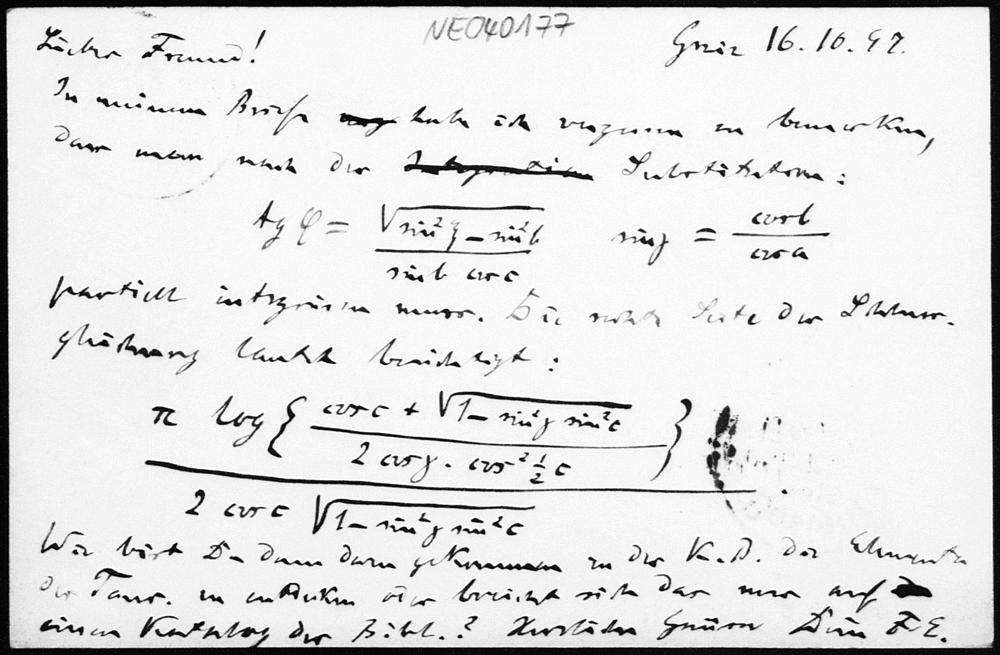 NE040177
Graz 16.10.97.
Lieber Freund!
In meinem Briefe habe ich vergessen zu bemerken,
dass man nach der Integration Substitution:
tg φ = √(sin²ξ - sin²b) / (sin b cos c)    sin γ = cos b / cos a
partiell integrieren muss. Die rechte Seite der Schluss-
gleichung lautet berichtigt:
π log { (cos c + √(1 - sin²γ sin²c)) / (2 cos γ . cos² ½ c) }
2 cos c √(1 - sin²γ sin²c) .
Wie bist Du denn dazu gekommen in der K.B. die Elementa
der Taur. zu entdecken oder bezieht sich das nur auf
einen Katalog der Bibl.? Herzliche Grüsse Dein F E.